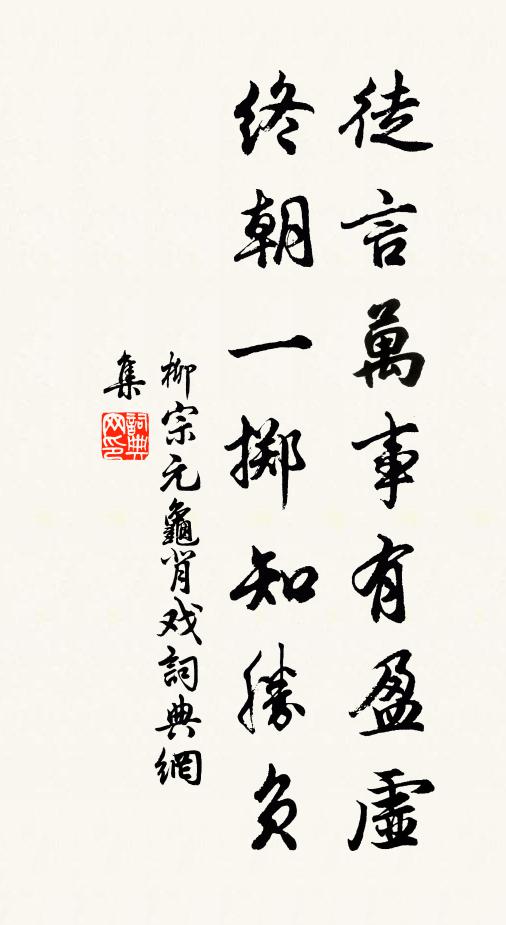 徒言萬事有盈虛
終朝一擲知勝負
柳宗元龜背戏詞典網
集
詞典
网印